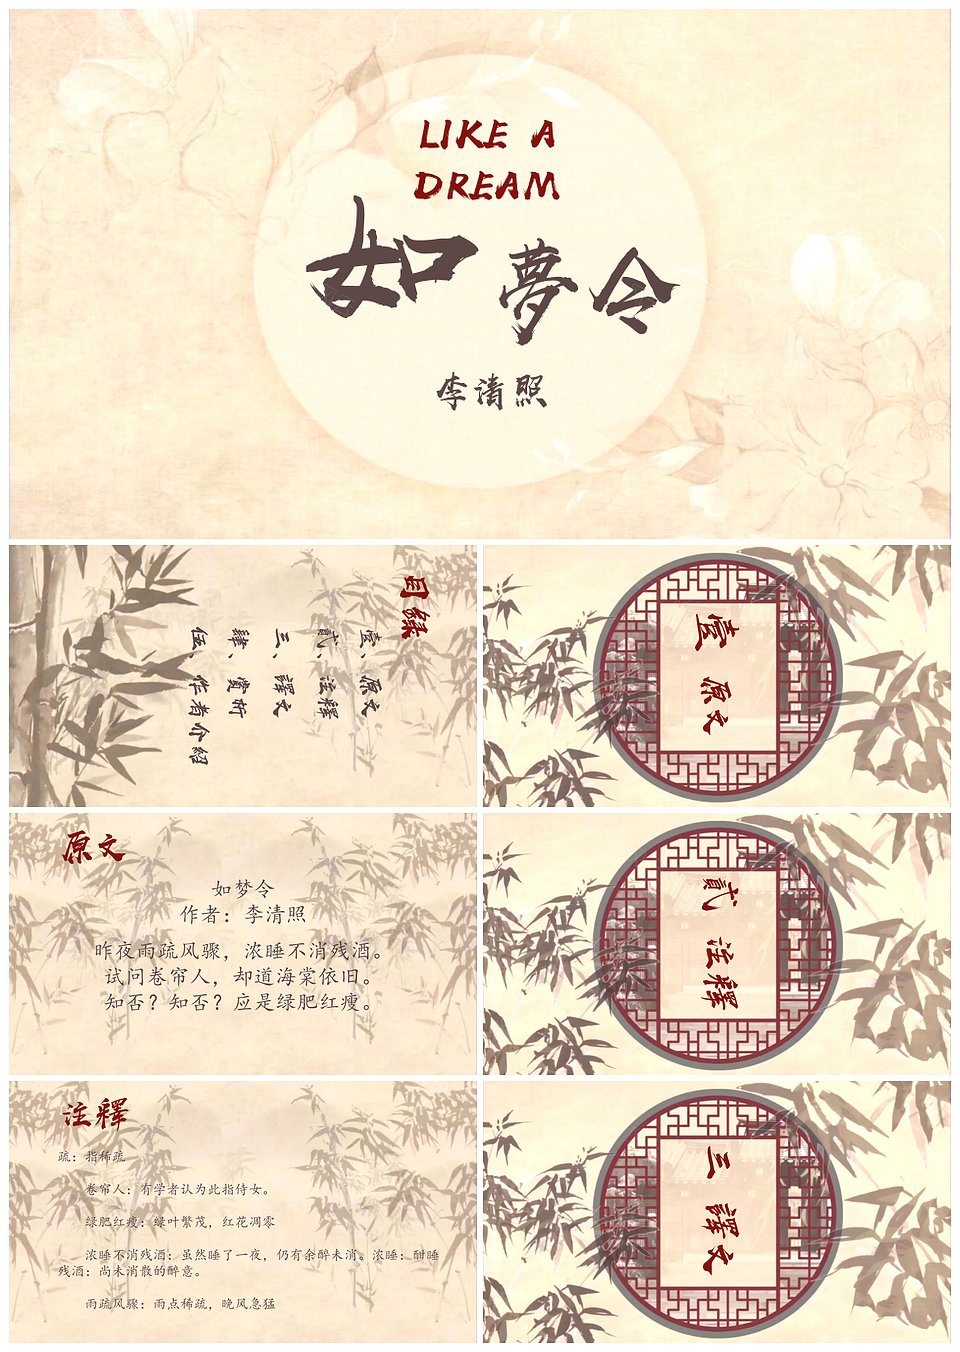 LIKE A
DREAM
如夢令
李清照
目録
壹、原文
貳、注釋
三、譯文
肆、賞析
伍、作者介紹
壹 原文
原文
如梦令
作者：李清照
昨夜雨疏风骤，浓睡不消残酒。
试问卷帘人，却道海棠依旧。
知否？知否？应是绿肥红瘦。
貳 注釋
注釋
疏：指稀疏
卷帘人：有学者认为此指侍女。
绿肥红瘦：绿叶繁茂，红花凋零
浓睡不消残酒：虽然睡了一夜，仍有余醉未消。浓睡：酣睡
残酒：尚未消散的醉意。
雨疏风骤：雨点稀疏，晚风急猛
三 譯文